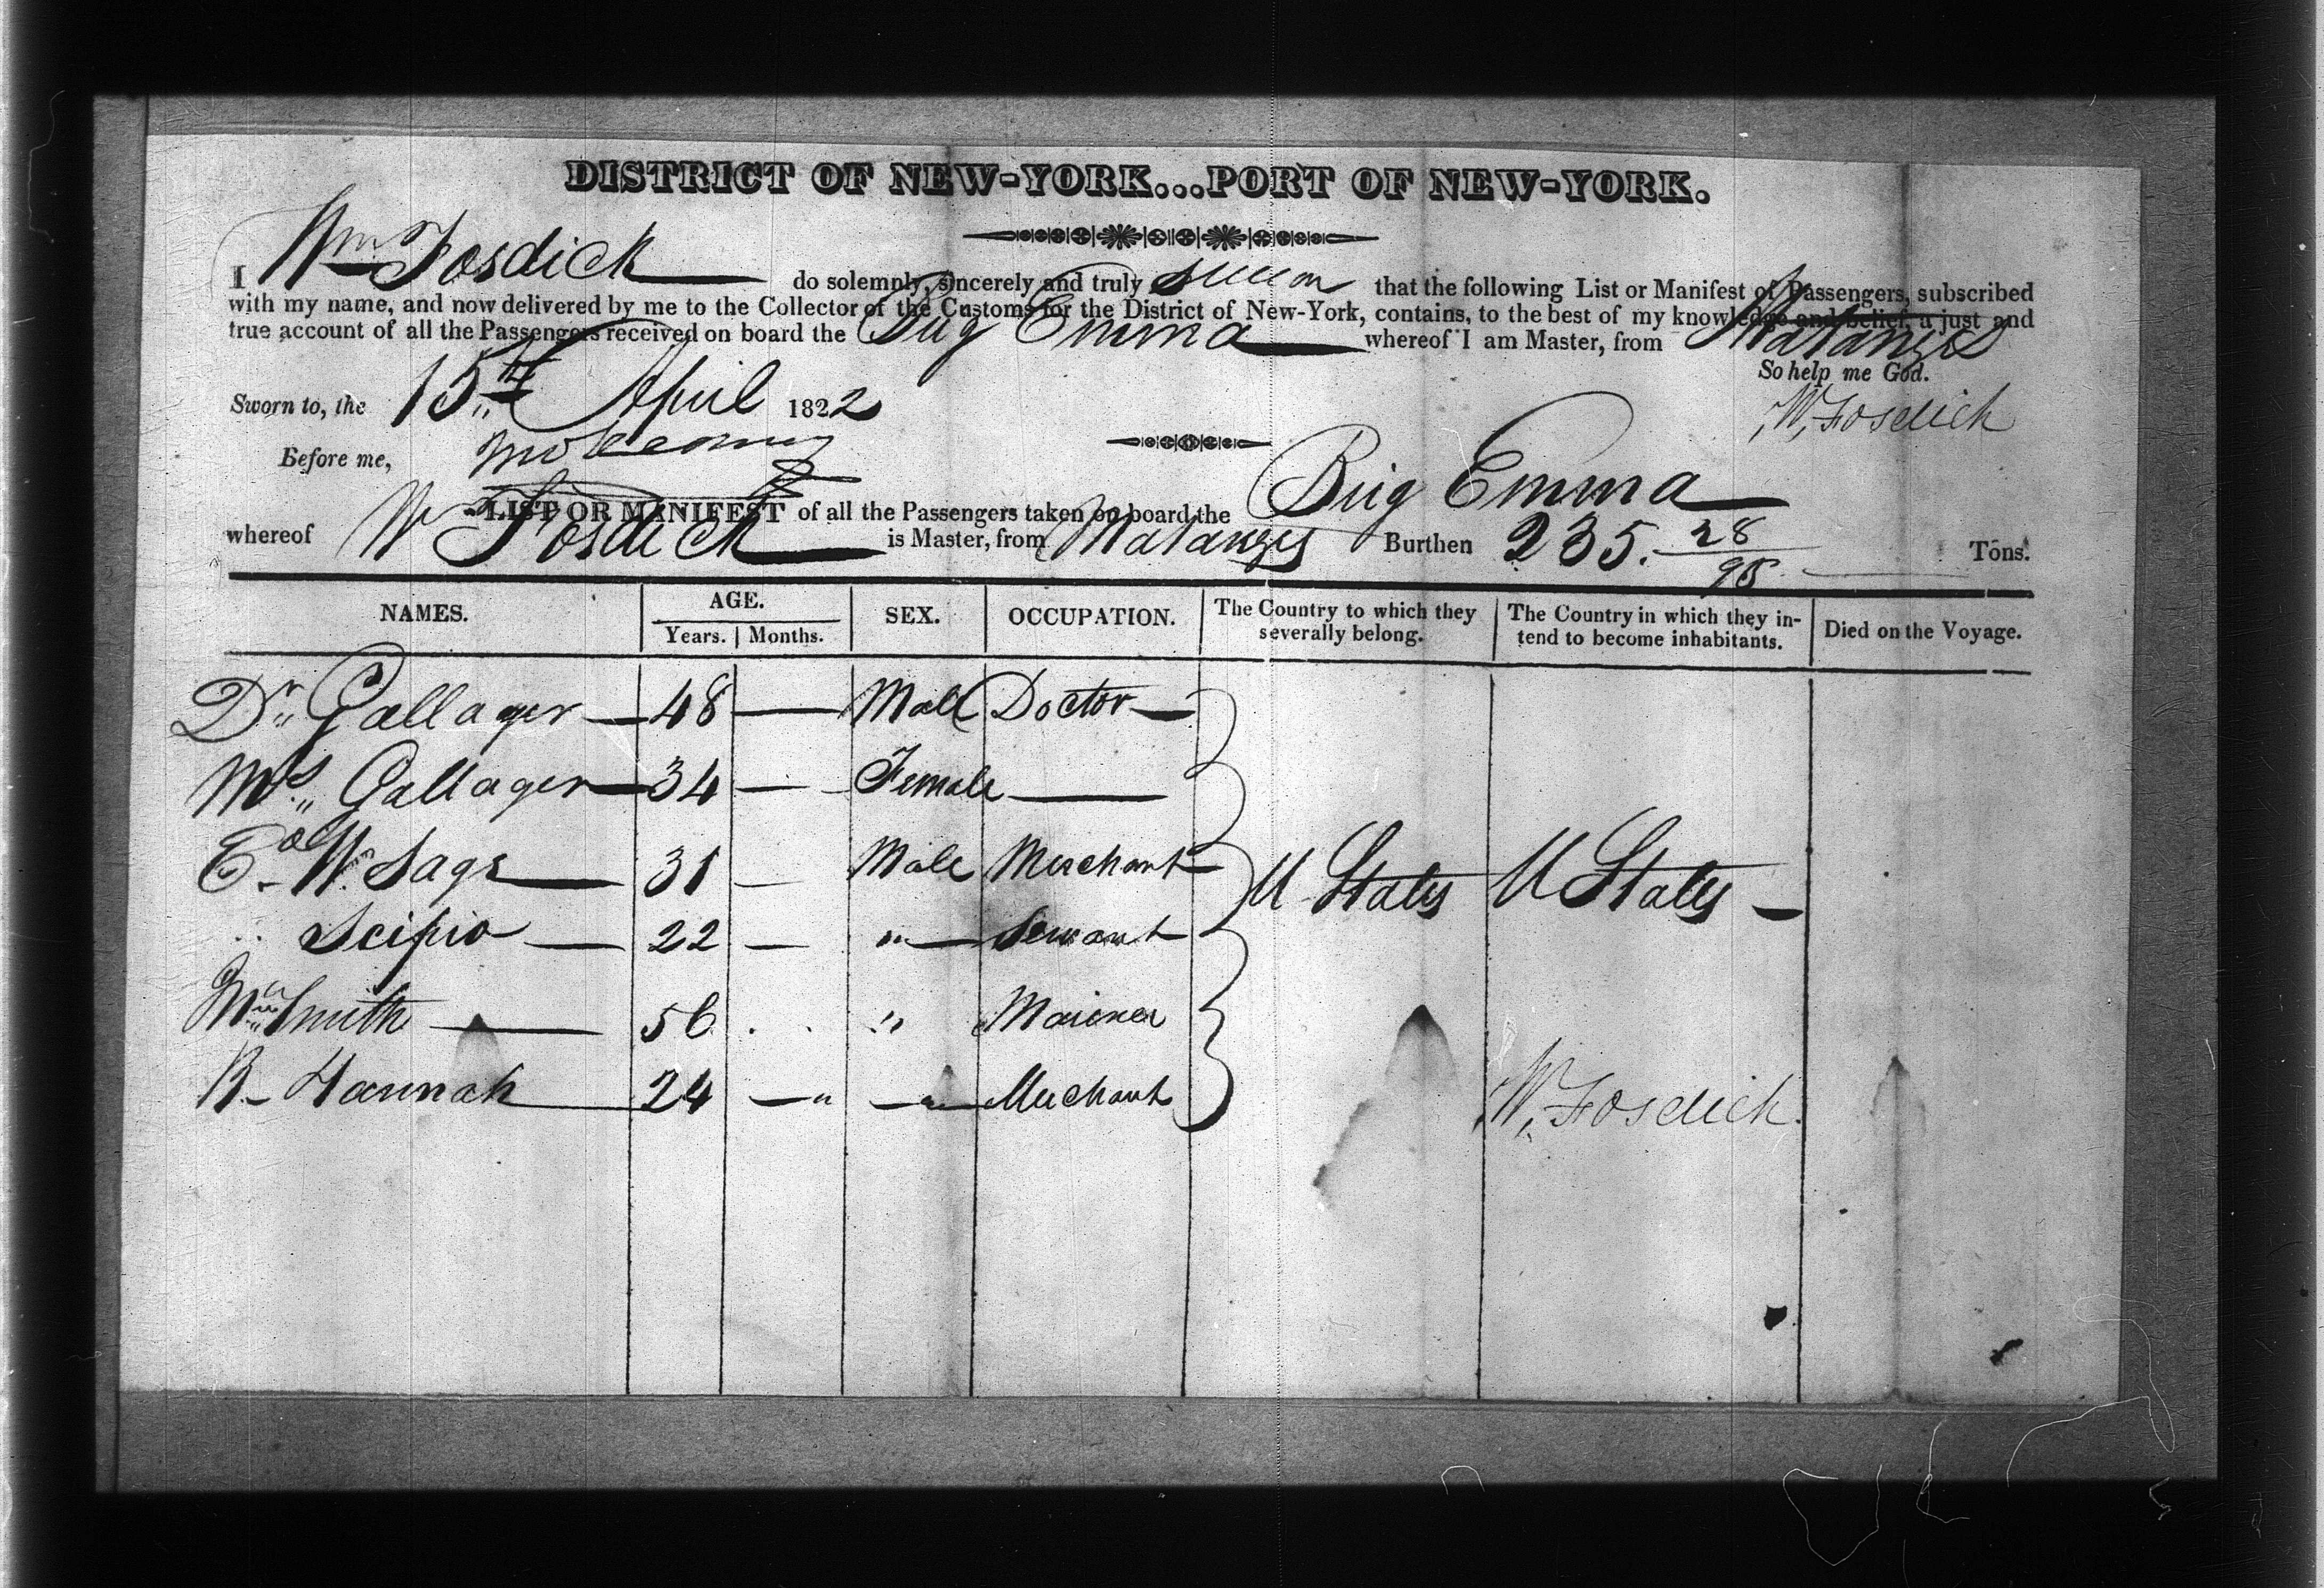 DISTRICT OF NEW-YORK...PORT OF NEW-YORK.
I Wm Fosdick do solemnly, sincerely and truly swear that the following List or Manifest of Passengers, subscribed
with my name, and now delivered by me to the Collector of the Customs for the District of New-York, contains, to the best of my knowledge and belief, a just and
true account of all the Passengers received on board the Brig Emma whereof I am Master, from Matanzas
So help me God.
Sworn to, the 15th April 1822 W, Fosdick
Before me,
LIST OR MANIFEST of all the Passengers taken on board the Brig Emma
whereof Wm Fosdick is Master, from Matanzas Burthen 235. 28/95 Tons.
NAMES. AGE. SEX. OCCUPATION. The Country to which they severally belong. The Country in which they intend to become inhabitants. Died on the Voyage.
Years. Months.
Dr Gallager 48 Male Doctor
Mrs Gallager 34 Female
Wm Sage 31 Male Merchant U States U States
Scipio 22 " Servant
Smith 56 " Mariner
R Hannah 24 " " Merchant
W, Fosdick.